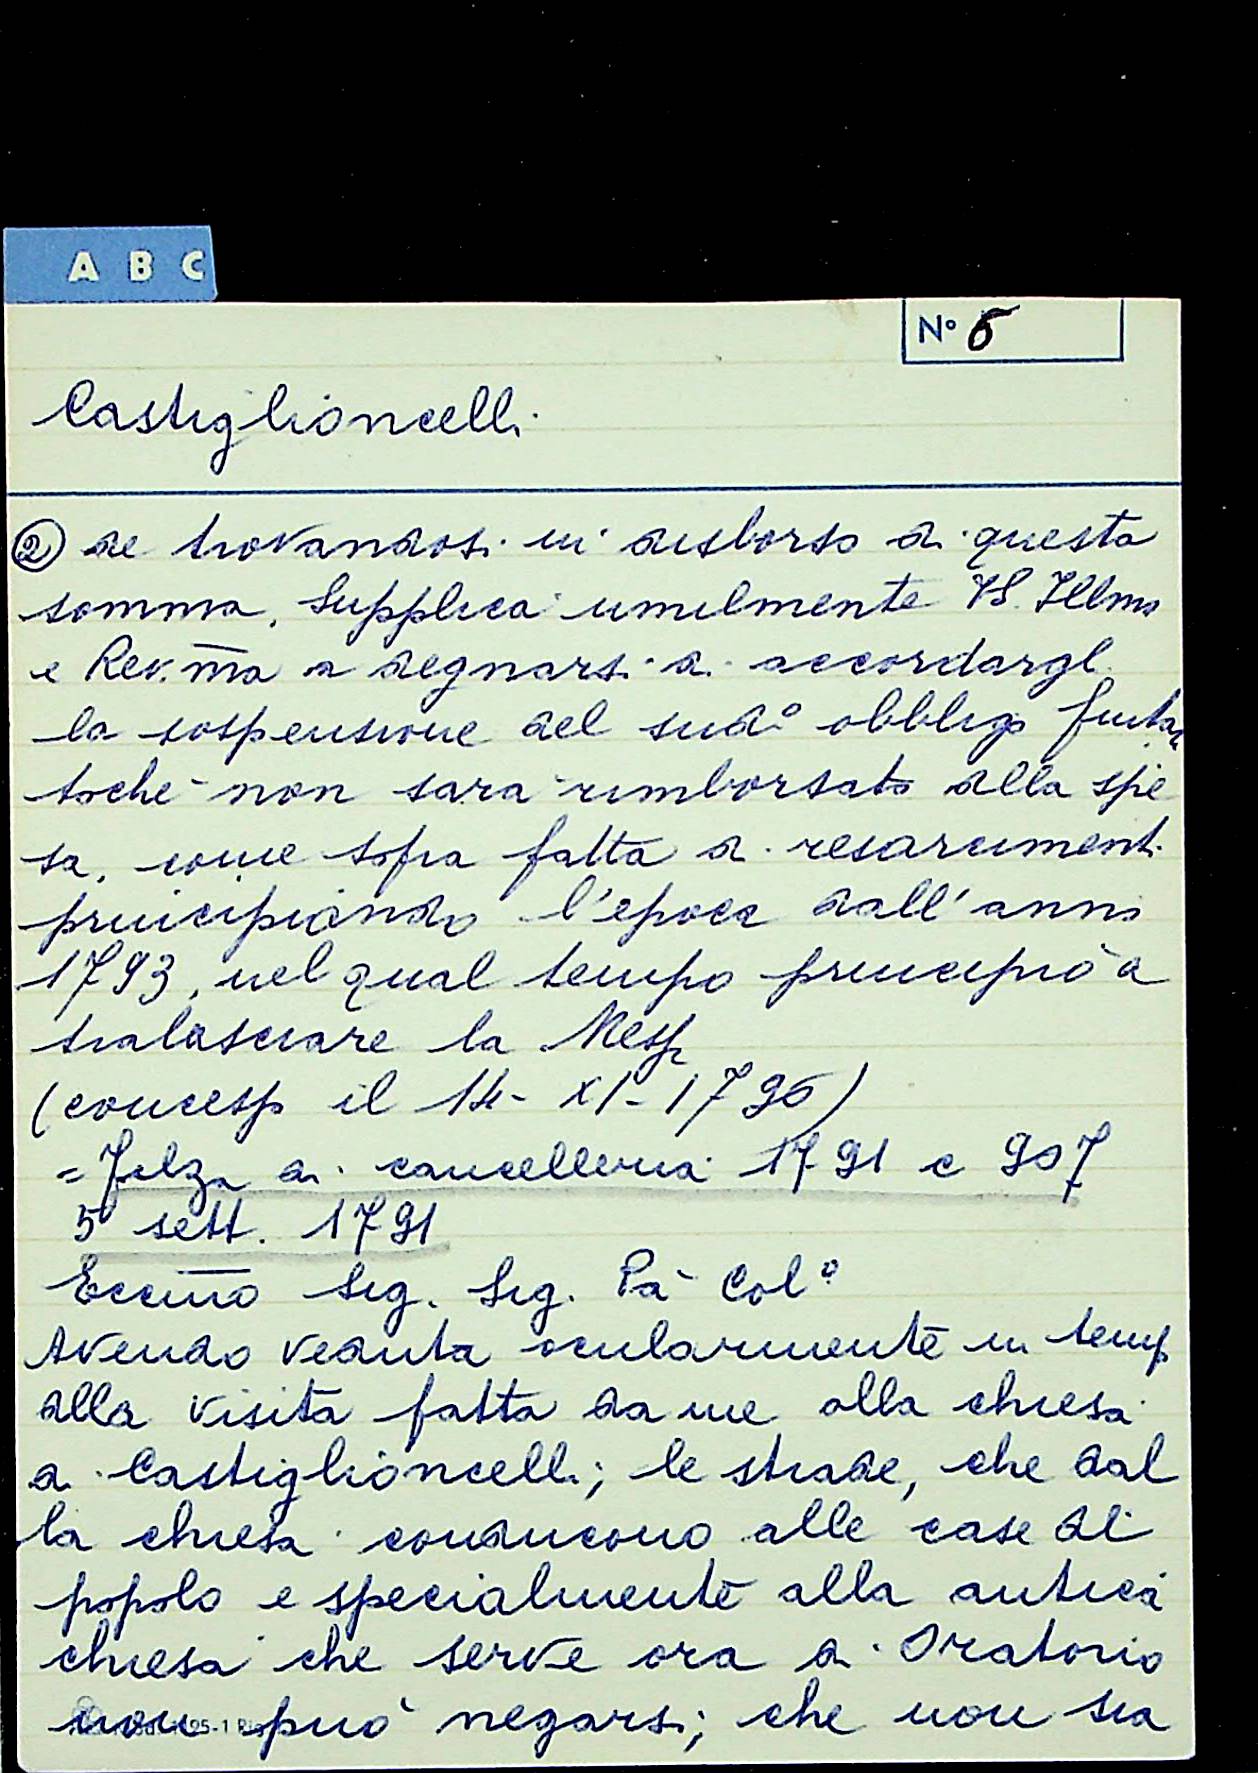 A B C
N° 5
Castiglioncelli
② de trovandosi in disborso di questa
somma. Supplica umilmente VS. Illma
e Rev.ma a degnarsi di accordargli
la sospensione del sud° obbligo fintan
toché non sarà rimborsato della spe
sa, come sopra fatta di resarcimenti
principiando l'epoca dall'anno
1793, nel qual tempo principiò a
tralasciare la Messa
(concesso il 14-XI-1796)
= Filza di cancelleria 1791 c 907
5 sett. 1791
Eccmo Sig. Sig. Pa Col°
Avendo veduta ocularmente in tempo
della visita fatta da me alla chiesa
di Castiglioncelli; le strade, che dal
la chiesa conducono alle case di
popolo e specialmente alla antica
chiesa che serve ora di Oratorio
non può negarsi; che non sia
25-1